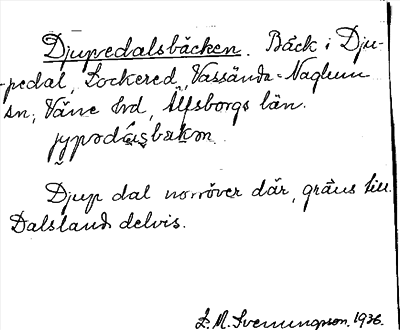 Djupedalsbäcken. Bäck i Dju-
pedal, Lockered, Vassända-Naglum
sn, Väne hd, Älfsborgs län.
Djup dal norröver där, gräns till
Dalsland delvis.
L. M. Svenungsson. 1936.